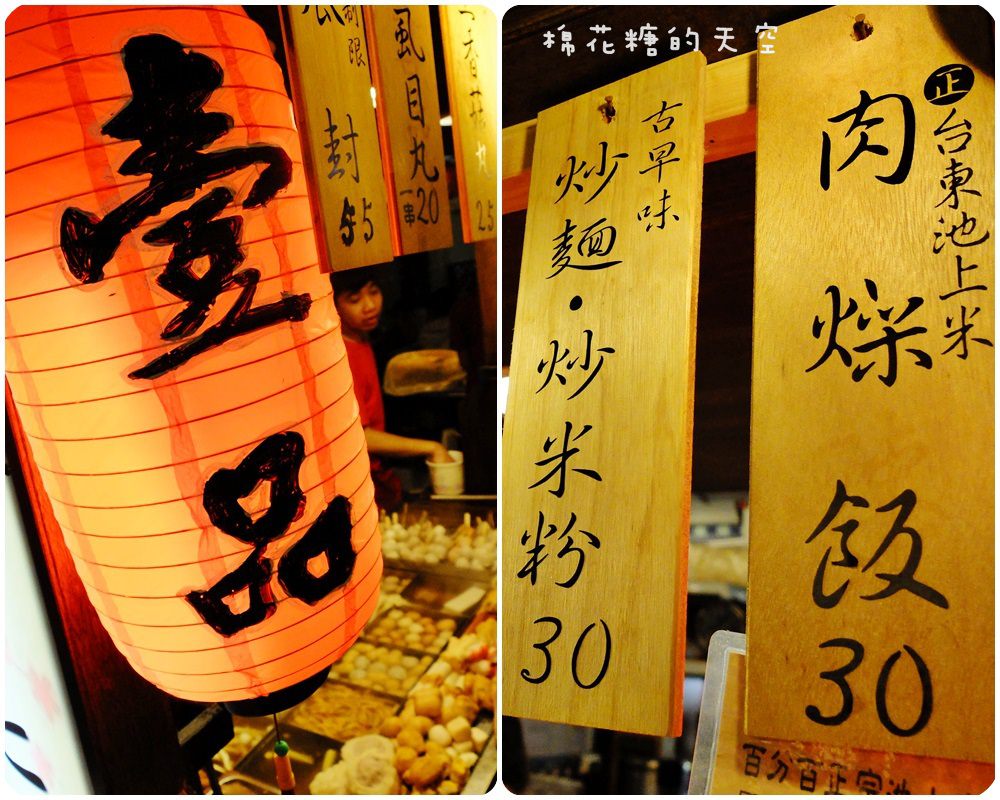 壹品
封
5
虱目丸
一串20
25
棉花糖的天空
古早味
炒麵·炒米粉30
正台東池上米
肉燥飯30
百分百正宗池